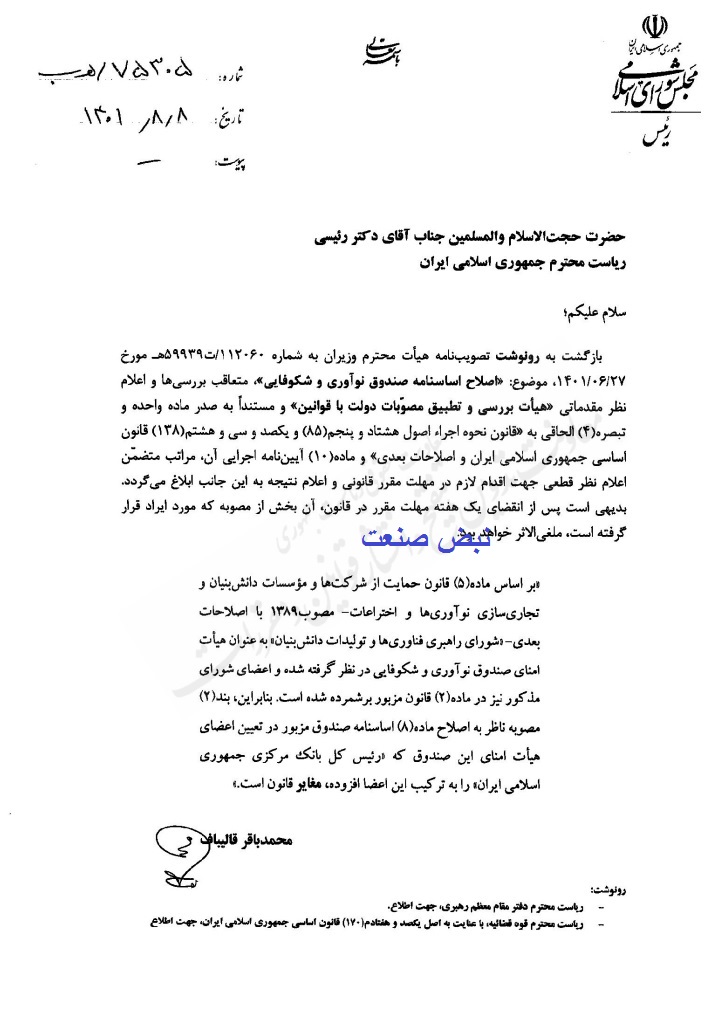 جمهوری اسلامی ایران
مجلس شورای اسلامی
رئیس
باسمه تعالی
شماره: ۷۵۳۰۵/هـ ب
تاریخ: ۱۴۰۱/۸/۸
پیوست: —
حضرت حجت‌الاسلام والمسلمین جناب آقای دکتر رئیسی
ریاست محترم جمهوری اسلامی ایران
سلام علیکم؛
بازگشت به رونوشت تصویب‌نامه هیأت محترم وزیران به شماره ۱۱۲۰۶۰/ت۵۹۹۳۹هـ مورخ
۱۴۰۱/۰۶/۲۷، موضوع: «اصلاح اساسنامه صندوق نوآوری و شکوفایی»، متعاقب بررسی‌ها و اعلام
نظر مقدماتی «هیأت بررسی و تطبیق مصوّبات دولت با قوانین» و مستنداً به صدر ماده واحده و
تبصره(۴) الحاقی به «قانون نحوه اجراء اصول هشتاد و پنجم(۸۵) و یکصد و سی و هشتم(۱۳۸) قانون
اساسی جمهوری اسلامی ایران و اصلاحات بعدی» و ماده(۱۰) آیین‌نامه اجرایی آن، مراتب متضمّن
اعلام نظر قطعی جهت اقدام لازم در مهلت مقرر قانونی و اعلام نتیجه به این جانب ابلاغ می‌گردد.
بدیهی است پس از انقضای یک هفته مهلت مقرر در قانون، آن بخش از مصوبه که مورد ایراد قرار
گرفته است، ملغی‌الاثر خواهد بود.
نبض صنعت
«بر اساس ماده(۵) قانون حمایت از شرکت‌ها و مؤسسات دانش‌بنیان و
تجاری‌سازی نوآوری‌ها و اختراعات- مصوب۱۳۸۹ با اصلاحات
بعدی-«شورای راهبری فناوری‌ها و تولیدات دانش‌بنیان» به عنوان هیأت
امنای صندوق نوآوری و شکوفایی در نظر گرفته شده و اعضای شورای
مذکور نیز در ماده(۲) قانون مزبور برشمرده شده است. بنابراین، بند(۲)
مصوبه ناظر به اصلاح ماده(۸) اساسنامه صندوق مزبور در تعیین اعضای
هیأت امنای این صندوق که «رئیس کل بانک مرکزی جمهوری
اسلامی ایران» را به ترکیب این اعضا افزوده، مغایر قانون است.»
محمدباقر قالیباف
رونوشت:
- ریاست محترم دفتر مقام معظم رهبری، جهت اطلاع.
- ریاست محترم قوه قضائیه، با عنایت به اصل یکصد و هفتادم(۱۷۰) قانون اساسی جمهوری اسلامی ایران، جهت اطلاع